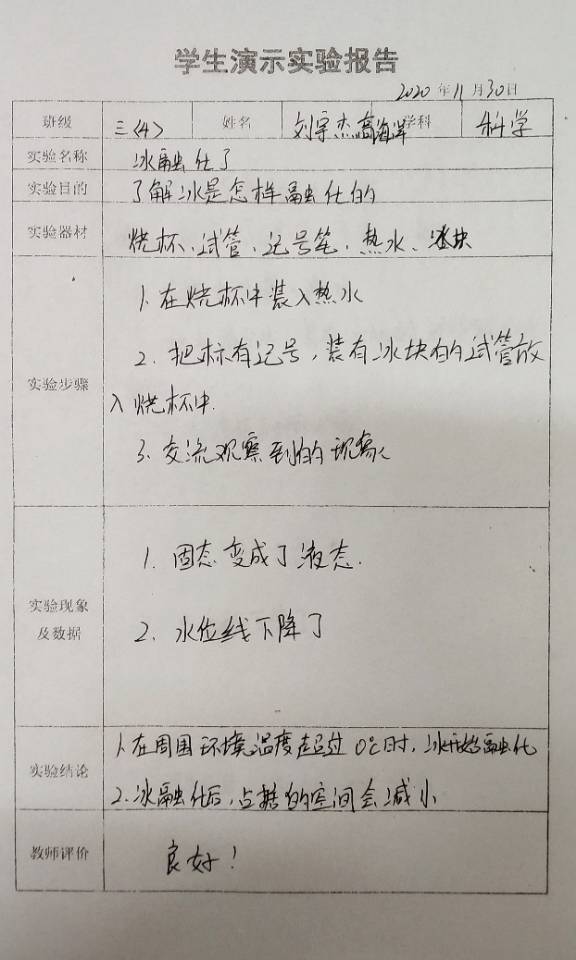 学生演示实验报告
2020年11月30日
班级 三(4) 姓名 刘宇杰高海洋 学科 科学
实验名称 冰融化了
实验目的 了解冰是怎样融化的
实验器材 烧杯、试管、记号笔、热水、冰块
实验步骤
1. 在烧杯中装入热水
2. 把标有记号,装有冰块的试管放
入烧杯中.
3. 交流观察到的现象
实验现象
及数据
1. 固态变成了液态.
2. 水位线下降了
实验结论
1.在周围环境温度超过0℃时,冰开始融化
2.冰融化后,占据的空间会减小
教师评价 良好!